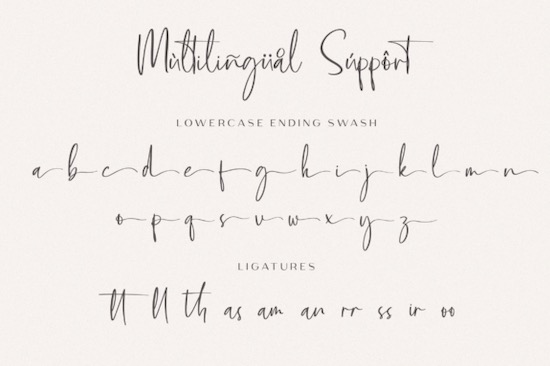 Mùltilíñgüål Súppôrt
LOWERCASE ENDING SWASH
a b c d e f g h i j k l m n
o p q s v w x y z
LIGATURES
tt ll th as am an rr ss ir oo